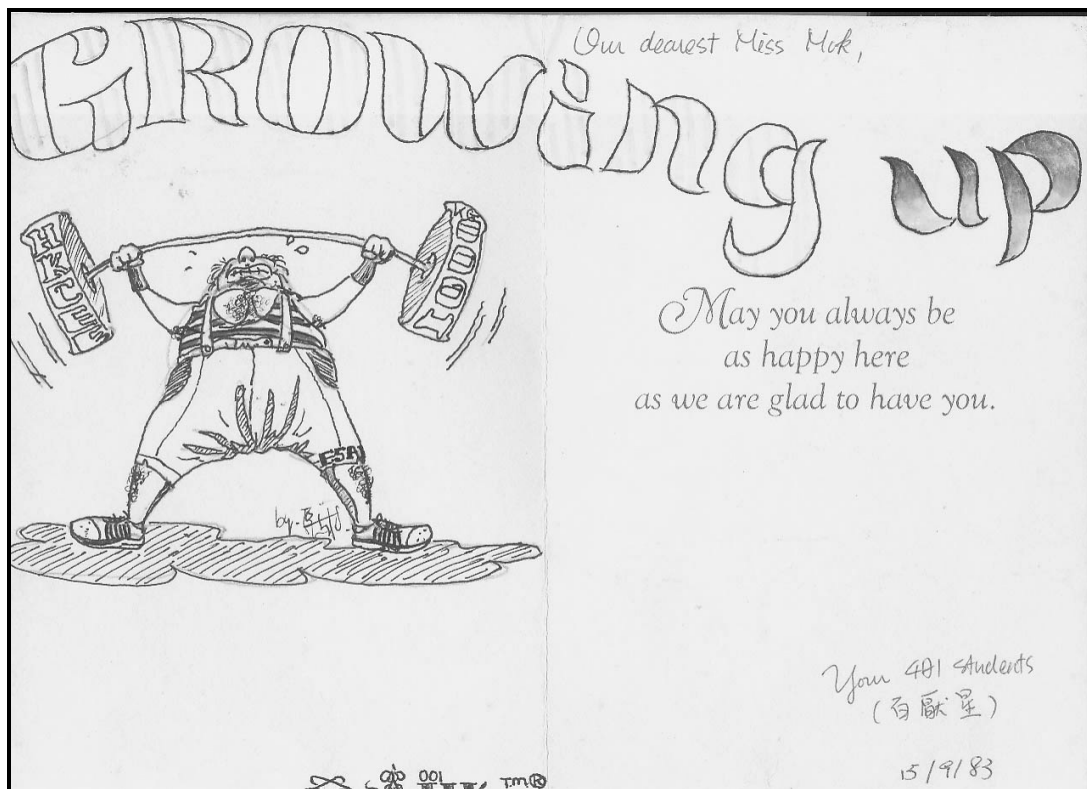 GROWing up
Our dearest Miss Mok,
HKCEE
1000 KG
F5A
by
May you always be
as happy here
as we are glad to have you.
Your 4B1 students
(百厭星)
15/9/83
001
T.M.®